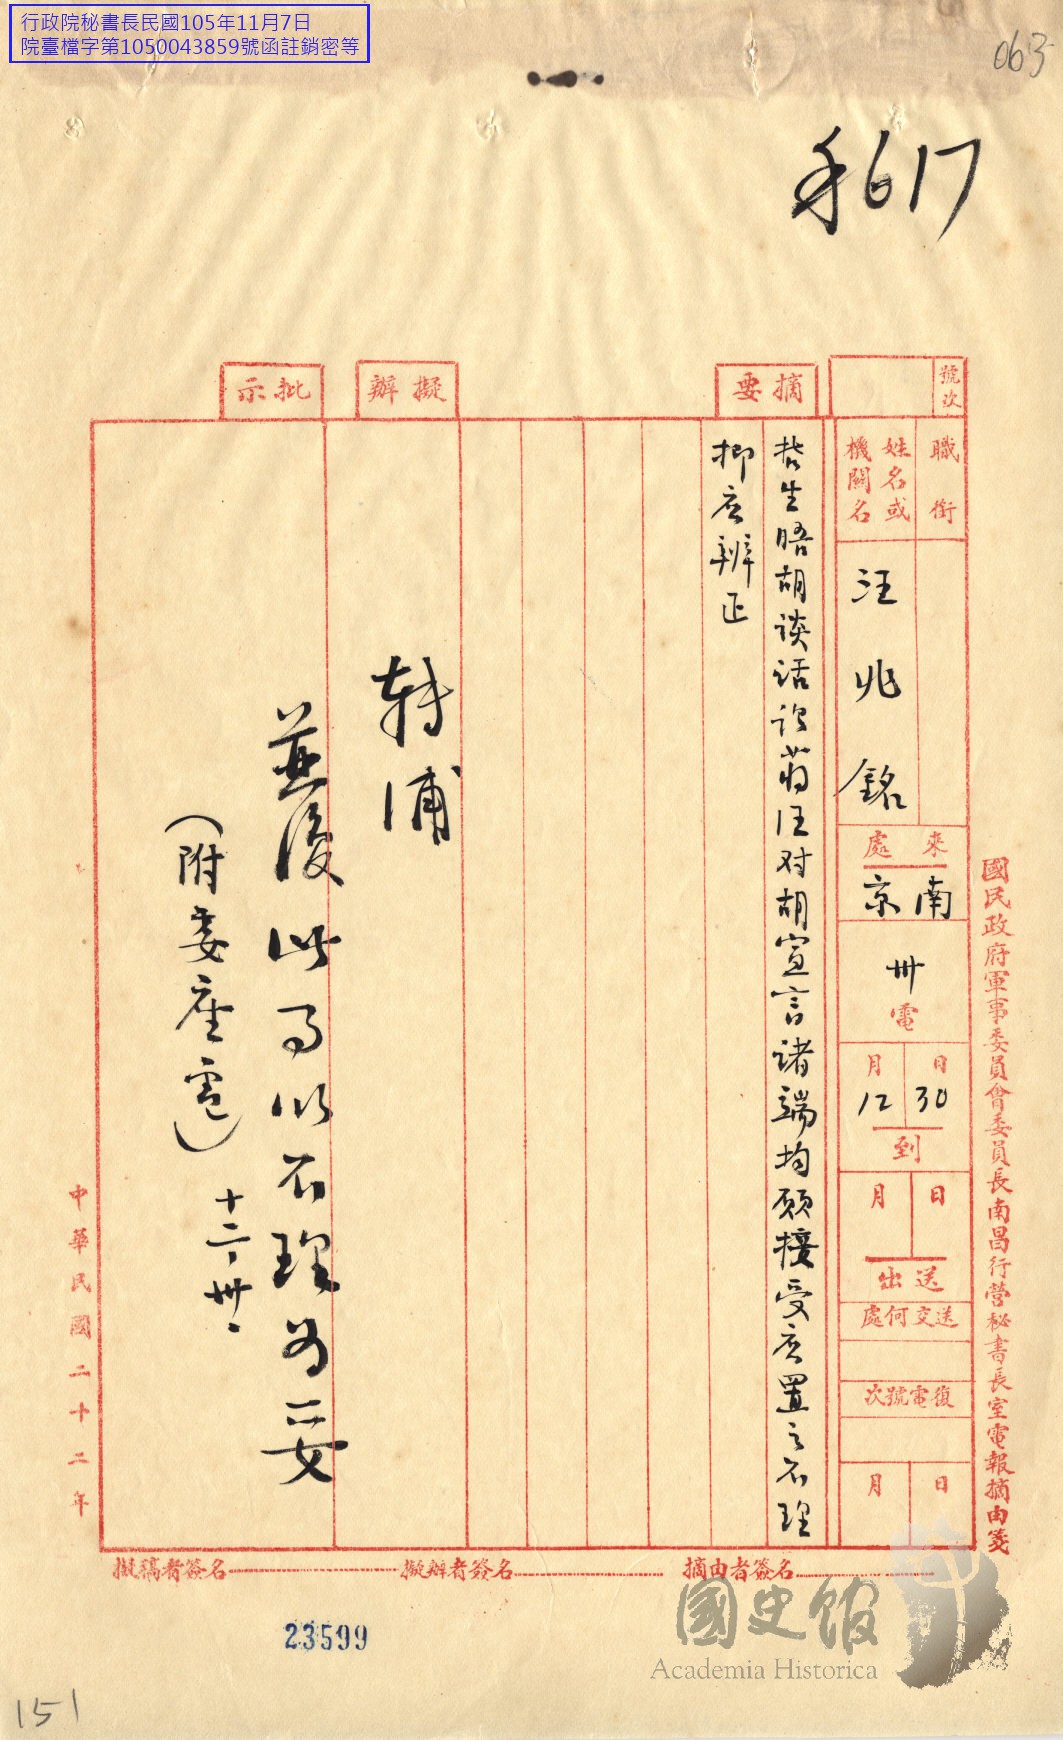 行政院秘書長民國105年11月7日
院臺檔字第1050043859號函註銷密等
063
禾617
國民政府軍事委員會委員長南昌行營秘書長室電報摘由箋
號次
職銜
姓名或機關名
汪兆銘
來處
南京
卅電
12月30日到
月日送出
送交何處
復電號次
月日
摘要
哲生晤胡談話說蔣汪对胡宣言諸端均願接受应置之不理
抑应辨正
擬辦
轉浦
批示
並復此事似不理為妥
(附委座電)
十二、卅、
中華民國二十二年
摘由者簽名
擬辦者簽名
擬稿者簽名
23599
國史館
Academia Historica
151